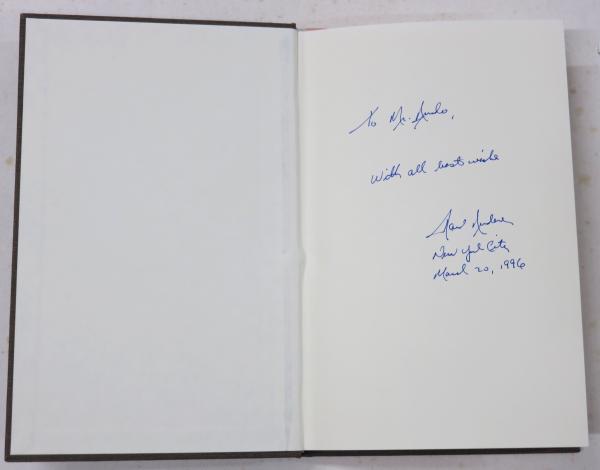 To Mr. Ando,
With all best wishe
New York City
March 20, 1996